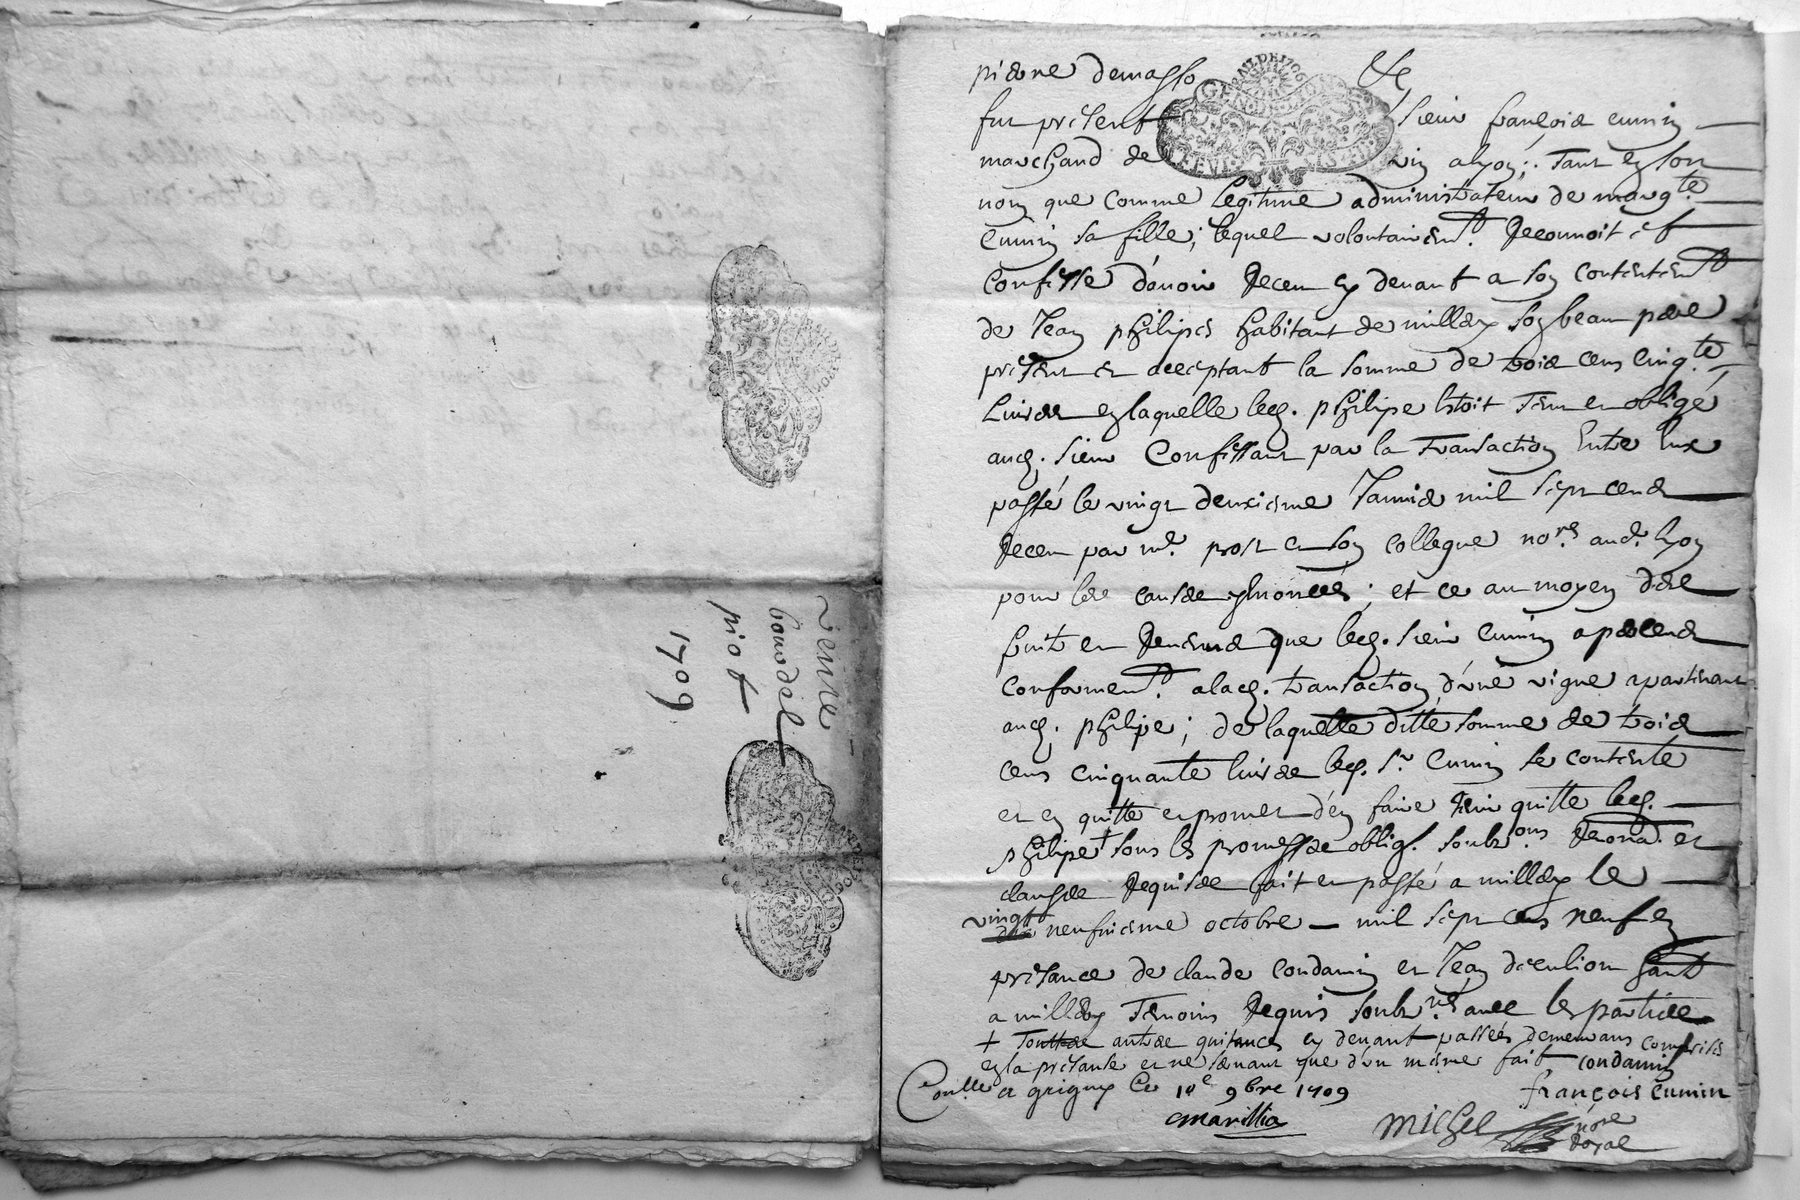 vente
bourdel
piot
1709
pierre demasso
fut présent sieur françois cumin
marchand de vin a lyon; tant en son
nom que comme legitime administrateur de margte
Cumin sa fille; lequel volontairemt reconnoit et
confesse d'avoir receu cy devant a son contentemt
de Jean philipes habitant de millery son beau pere
présent et acceptant la somme de trois cens cinqte
livres en laquelle led. philipe estoit tenu et obligé
aud. sieur Confessant par la transaction entre eux
passé le vingt deuxiesme Janvier mil sept cens
receu par me. prost et son collegue nores aud. lyon
pour les causes y énoncées; et ce au moyen des
fruits et revenus que led. sieur cumin a perceus
conformemt. a lad. transaction d'une vigne apartenant
aud. philipe; de laquelle ditte somme de trois
cens cinquante livres led. sr. Cumin se contente
et en quitte et promet d'en faire tenir quitte led.
philipe + sous les promesses oblig. soubz.ons renond. et
clauses requises fait et passé a millery le
vingt neufviesme octobre mil sept cens neuf en
présance de claude condamin et Jean
a millery temoins requis soubz.nés avec les parties
+ Touttes autres quitances cy devant passées demeurans comprises
en la présante et ne servant que d'un mesme fait condamin
Con.lle a grigny le 10e 9bre 1709 françois cumin
cmarillia
michel nore
royal